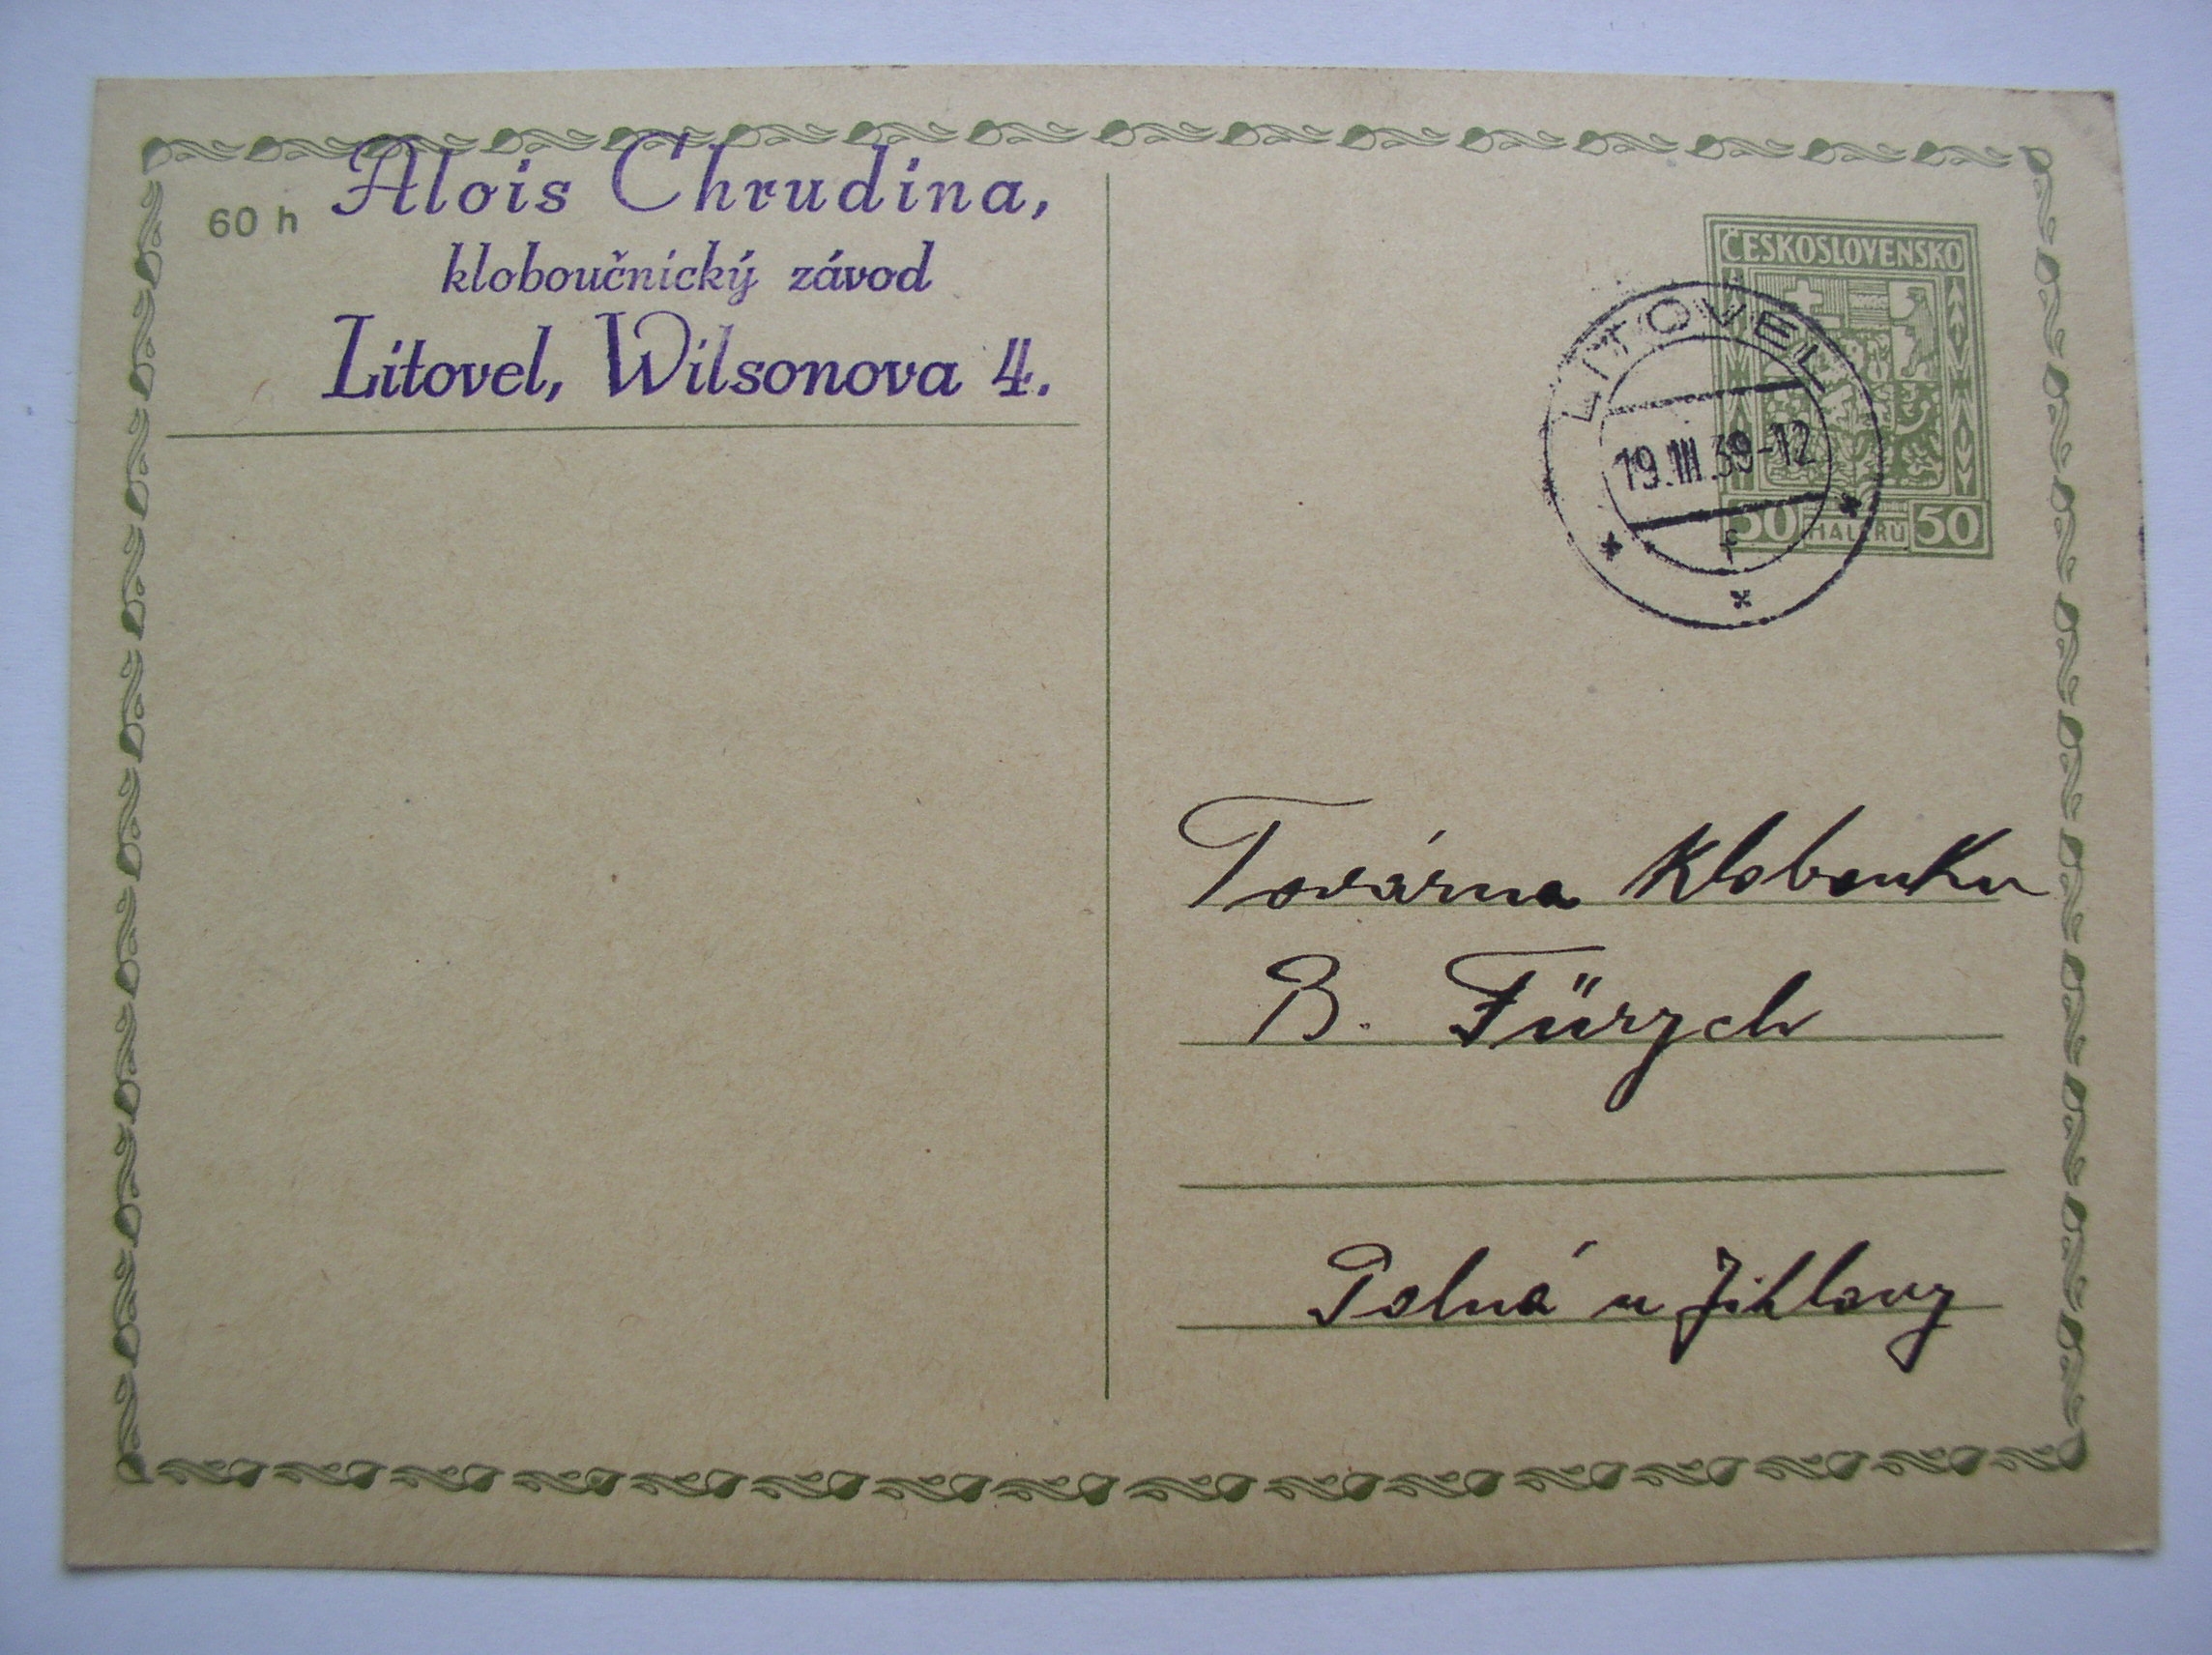 60 h
Alois Chrudina,
kloboučnický závod
Litovel, Wilsonova 4.
ČESKOSLOVENSKO
LITOVEL
19.III.39-12
50 HALÉŘŮ 50
Továrna Klobouku
B. Fürych
Polná u Jihlavy